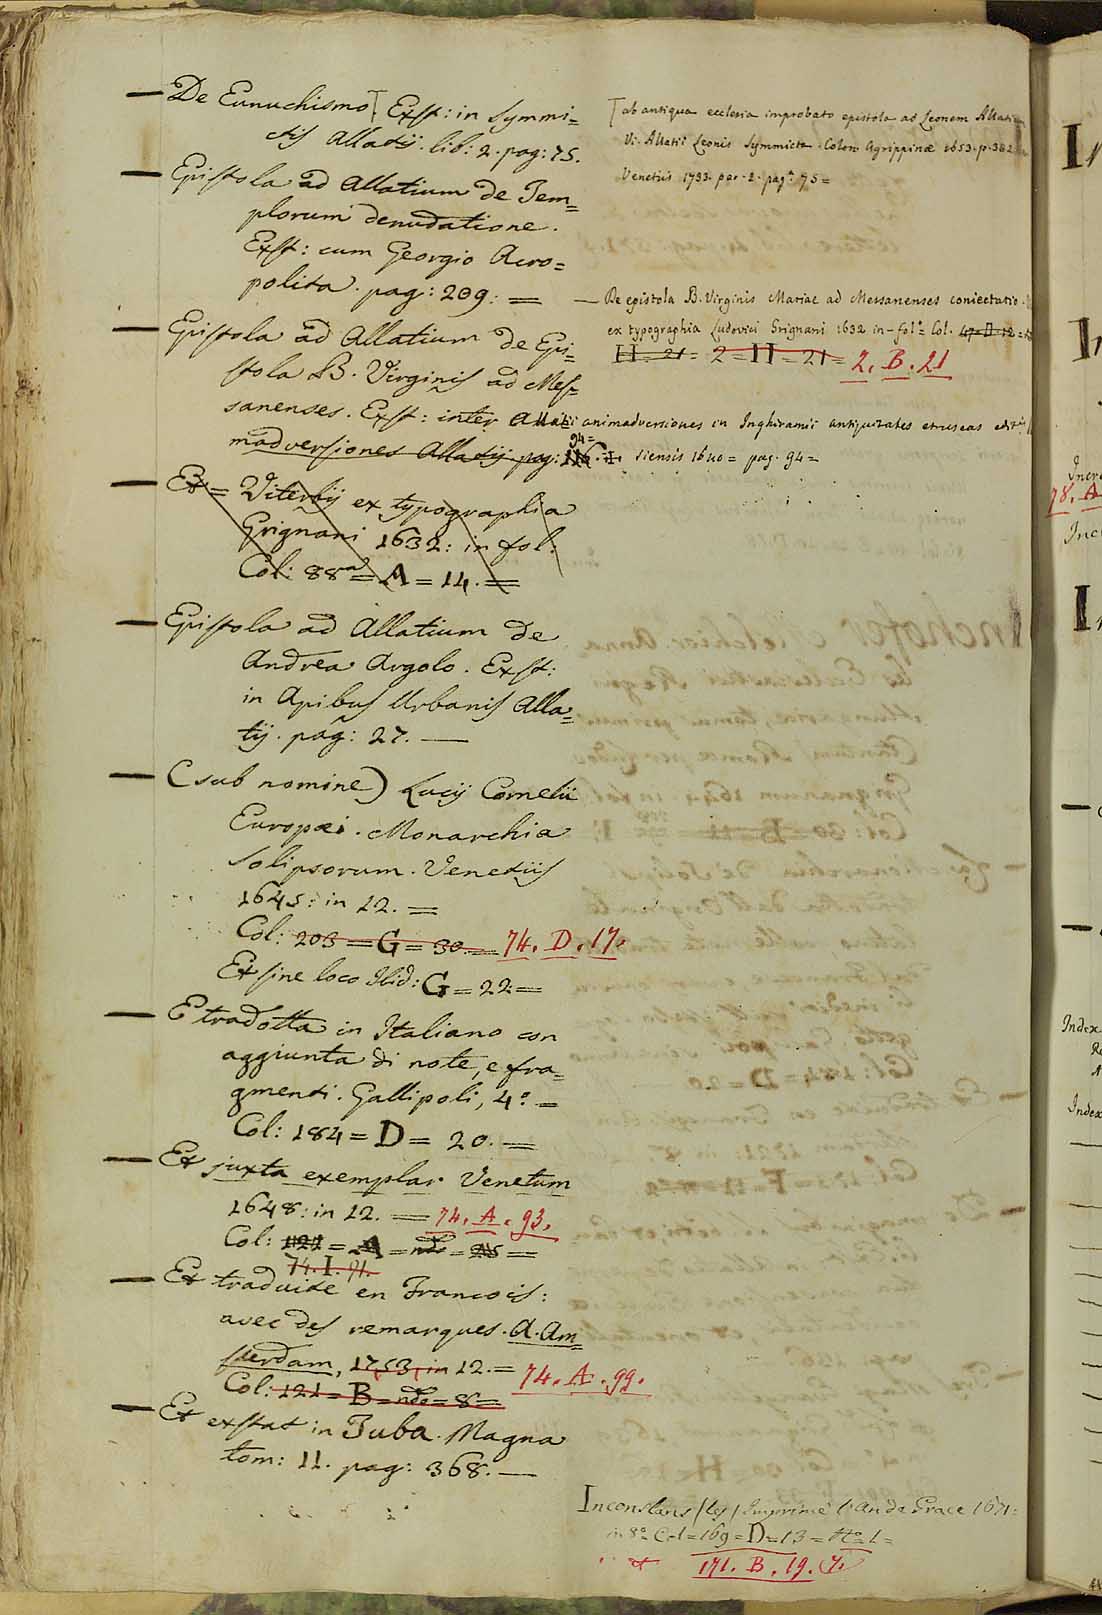 — De Eunuchismo Γ Exst: in Symmi=
ctis Allatij. lib: 2. pag: 75.
— Epistola ad Allatium de Tem=
plorum denudatione.
Exst: cum Georgio Acro=
polita. pag: 209: =
— Epistola ad Allatium de Epi=
stola B. Virginis ad Mes=
sanenses. Exst: inter
madversiones Allatij pag:
— Et = Viterbij ex typographia
Grignani 1632: in fol:
Col: 88 = A = 14. =
— Epistola ad Allatium de
Andrea Argolo. Exst:
in Apibus Urbanis Alla=
tij. pag: 27. —
— (sub nomine) Lucij Cornelii
Europæi. Monarchia
Solipsorum. Venetiis
1645: in 12. =
Col: 203 = G = 30. = 74. D. 17.
Et sine loco Ibid: G = 22 =
— E tradotta in Italiano con
aggiunta di note, e fra=
gmenti. Gallipoli, 4.º =
Col: 184 = D = 20. =
— Et juxta exemplar Venetum
1648: in 12. = 74. A. 93.
Col: 121 = A =
74. I. 91.
— Et traduite en Francois:
avec des remarques. A. Am=
sterdam, 1753, in 12. = 74. A. 99.
Col: 121 = B = = 8 =
— Et exstat in Tuba Magna
tom: 11. pag: 368. —
Γ ab antiqua ecclesia improbato epistola ad Leonem Allatium
Vi. Allatii Leonis Symmicta. Colon Agrippinæ 1653. p. 382
Venetiis 1733. par. 2. pag. 75 =
— De epistola B. Virginis Mariae ad Messanenses coniectatio.
ex typographia Ludovici Grignani 1632 in-fol.º Col. 47 = D = 12 =
H = 21 = 2 = II = 21 = 2. B. 21
Allatii animadversiones in Inghiramii antiquitates etruscas
94 =
Siensis 1640 = pag. 94 =
Inconstans (les) Imprimé l'An de Grace 1671:
in 8º Col = 169 = D = 13 = Nº 1 =
171. B. 19. (7.)